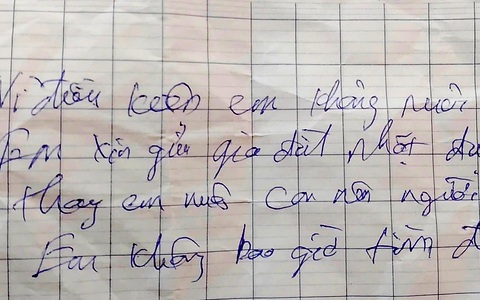 Vì điều kiện em không nuôi
Em xin gửu gia đình nhặt đư
thay em nuôi con nên người
Em không bao giờ tìm đ